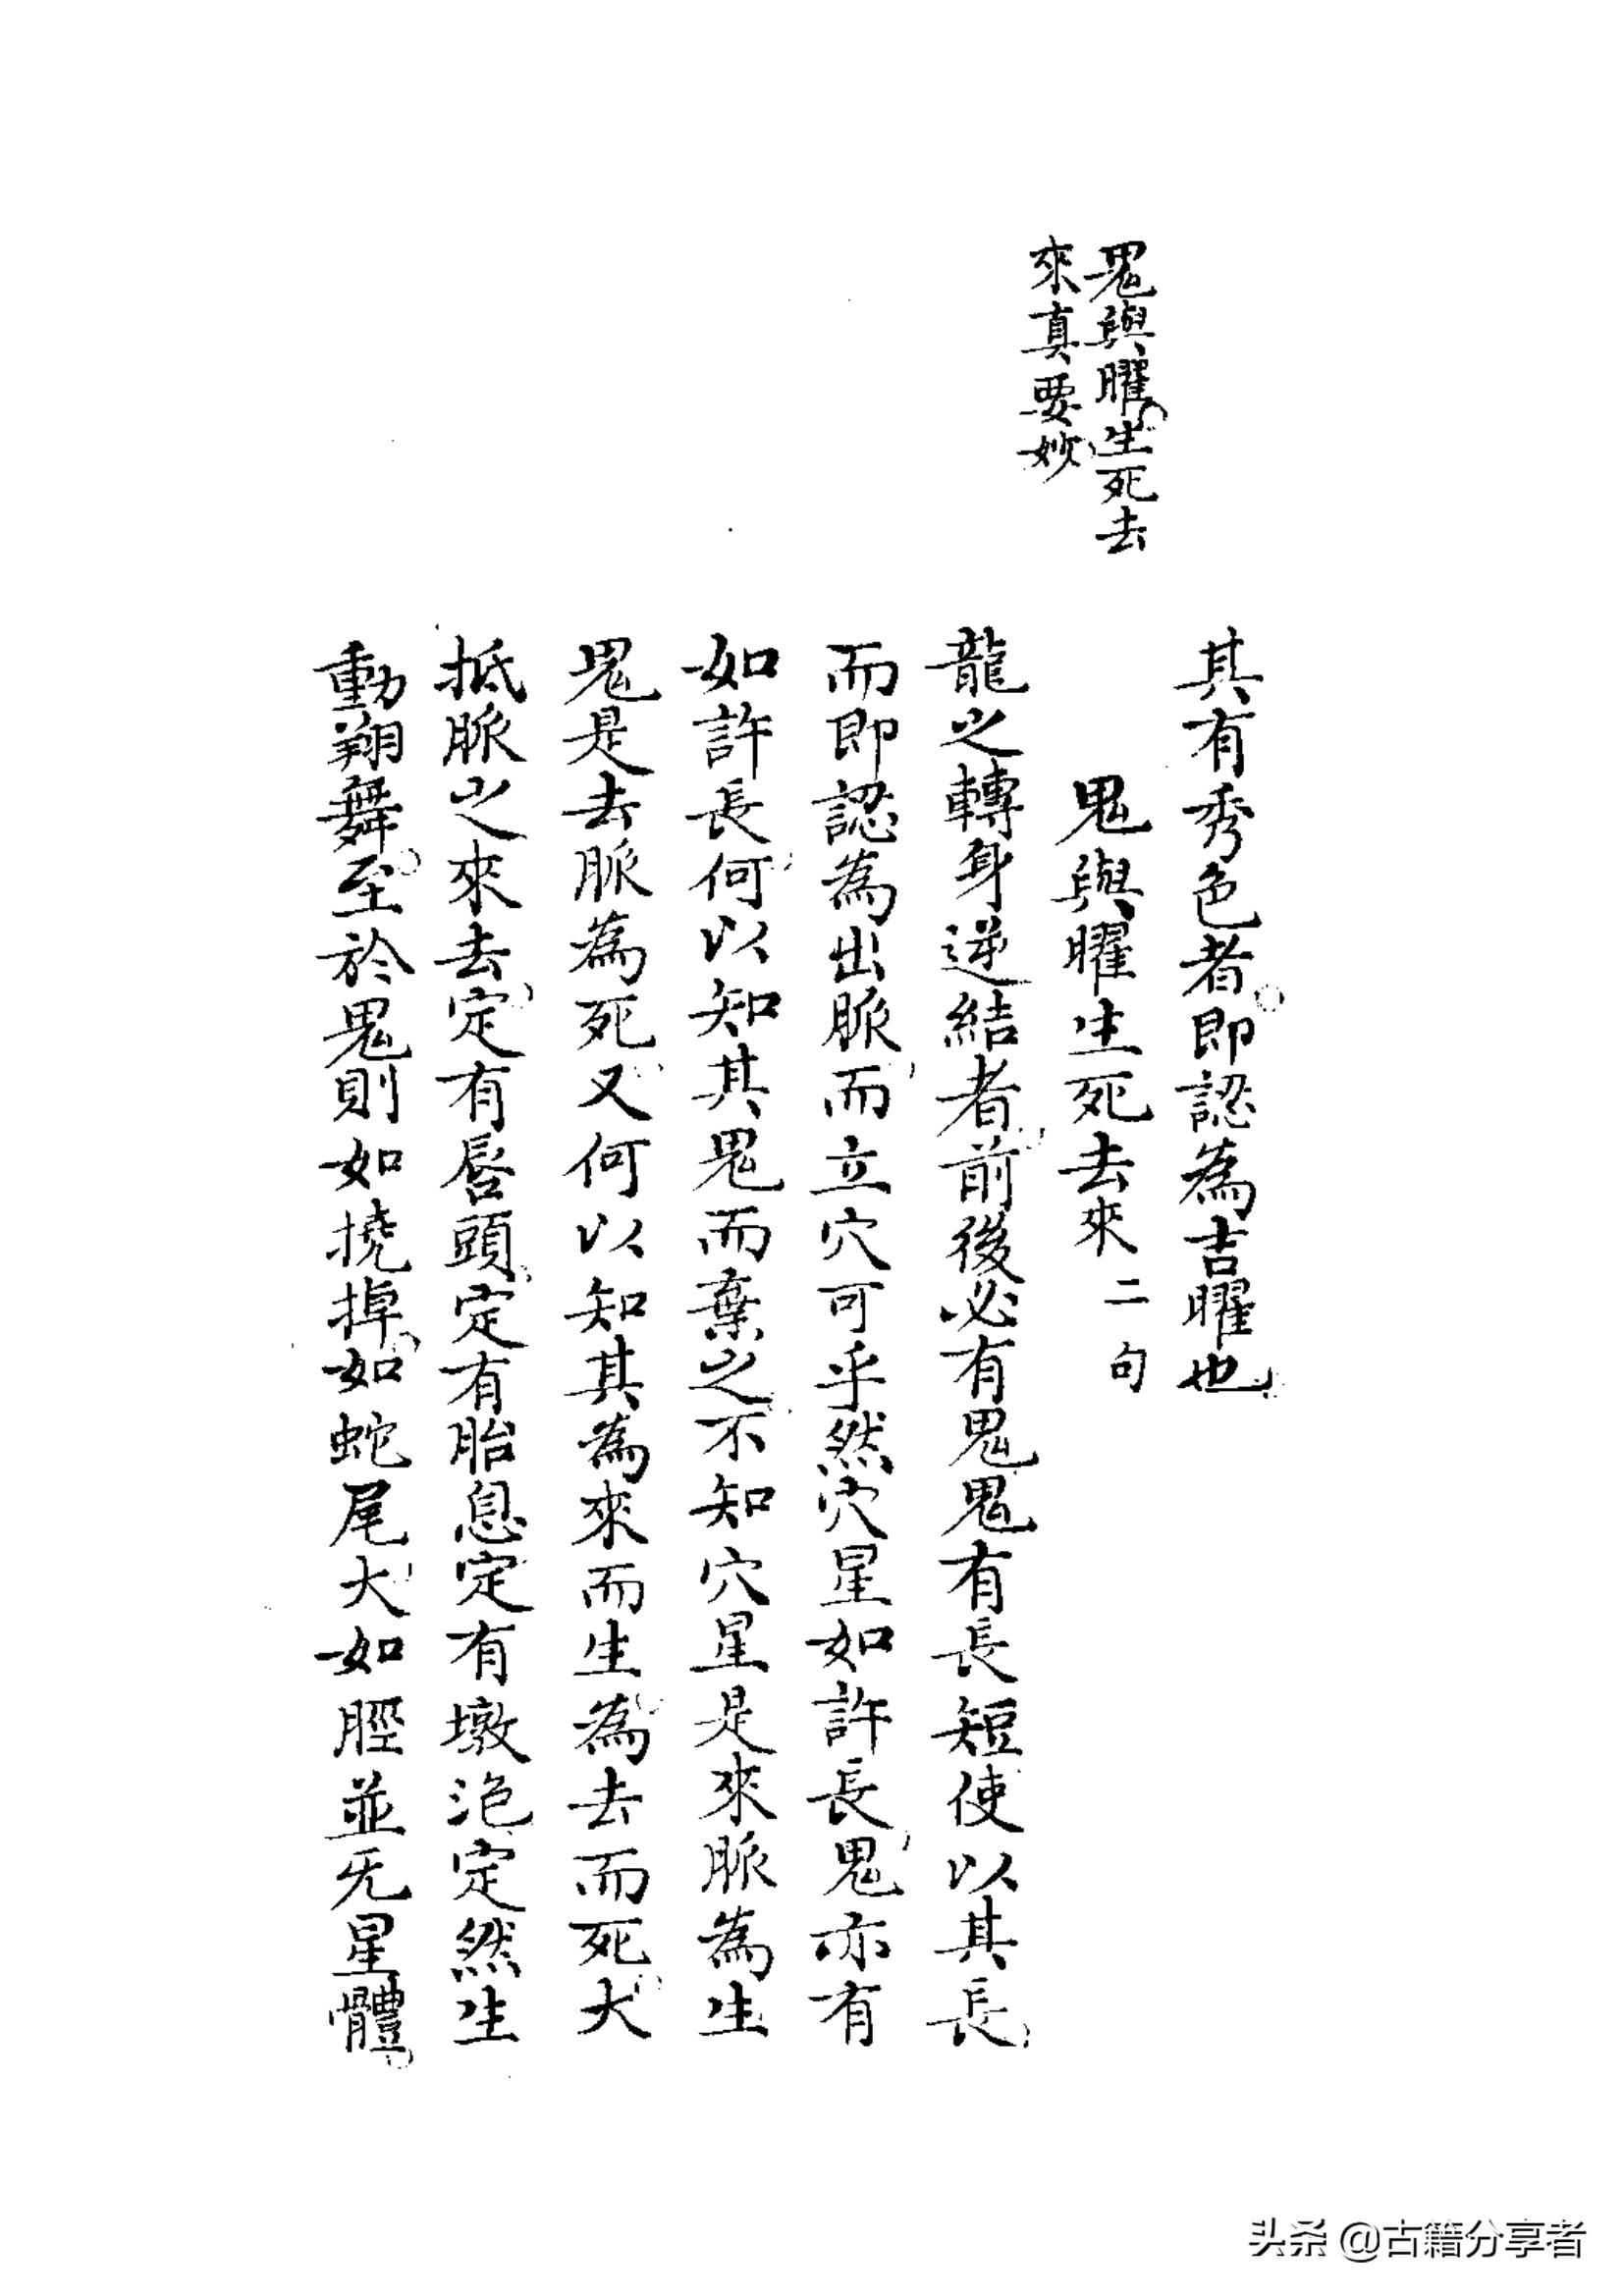 鬼與曜生死去
來真要妙
其有秀色者即認為吉曜也
鬼與曜生死去來二句
龍之轉身逆結者前後必有鬼鬼有長短使以其長
而即認為出脈而立穴可乎然穴星如許長鬼亦有
如許長何以知其鬼而棄之不知穴星是來脈為生
鬼是去脈為死又何以知其為來而生為去而死大
抵脈之來去定有唇頭定有胎息定有墩泡定然生
動翔舞至於鬼則如撓掉如蛇尾大如脛並旡星體
头条 @古籍分享者